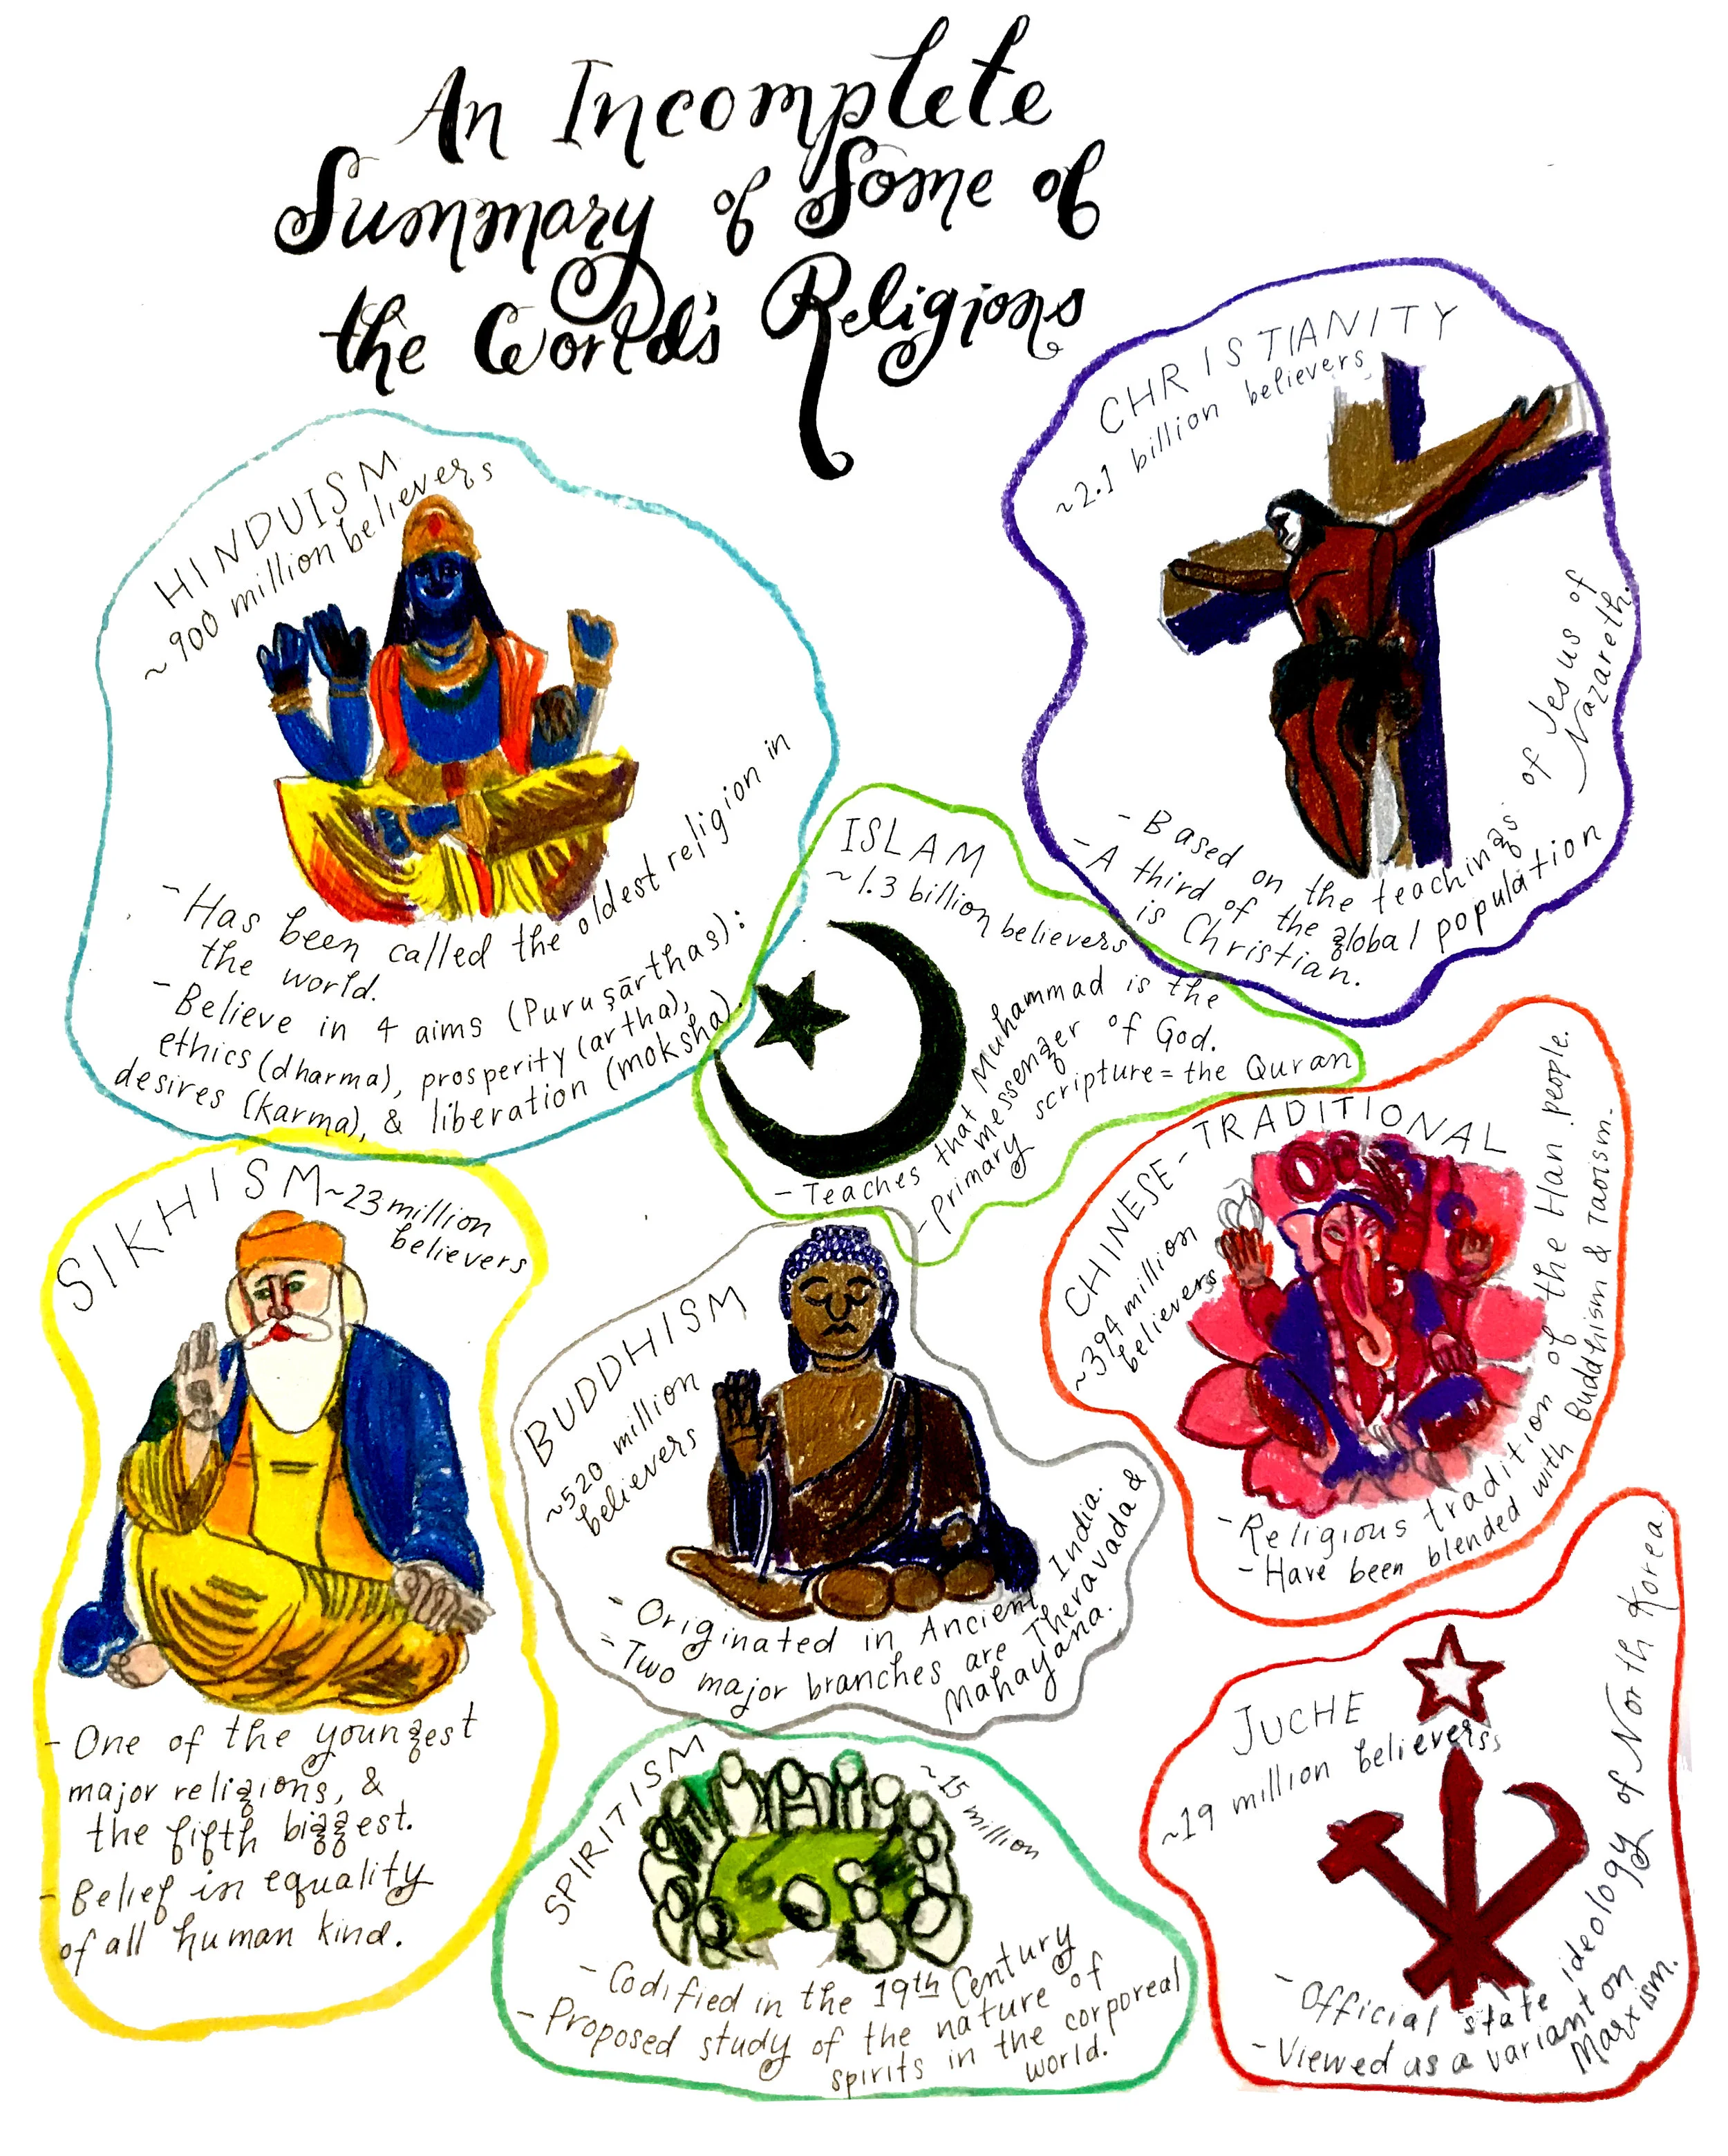 An Incomplete
Summary of Some of
the World's Religions
CHRISTIANITY
~2.1 billion believers
- Based on the teachings of Jesus of Nazareth.
- A third of the global population
is Christian.
HINDUISM
~900 million believers
- Has been called the oldest religion in
the world.
- Believe in 4 aims (Puruṣārthas):
ethics (dharma), prosperity (artha),
desires (karma), & liberation (moksha).
ISLAM
~1.3 billion believers
- Teaches that Muhammad is the
messenger of God.
- Primary scripture = the Quran
CHINESE-TRADITIONAL
~394 million
believers
- Religious tradition of the Han people.
- Have been blended with Buddhism & Taoism.
SIKHISM ~23 million
believers
- One of the youngest
major religions, &
the fifth biggest.
- Belief in equality
of all human kind.
BUDDHISM
~520 million
believers
- Originated in Ancient India.
- Two major branches are Theravada &
Mahayana.
SPIRITISM
~15 million
- Codified in the 19th Century
- Proposed study of the nature of
spirits in the corporeal
world.
JUCHE
~19 million believers
- Official state ideology of North Korea.
- Viewed as a variant on
Marxism.